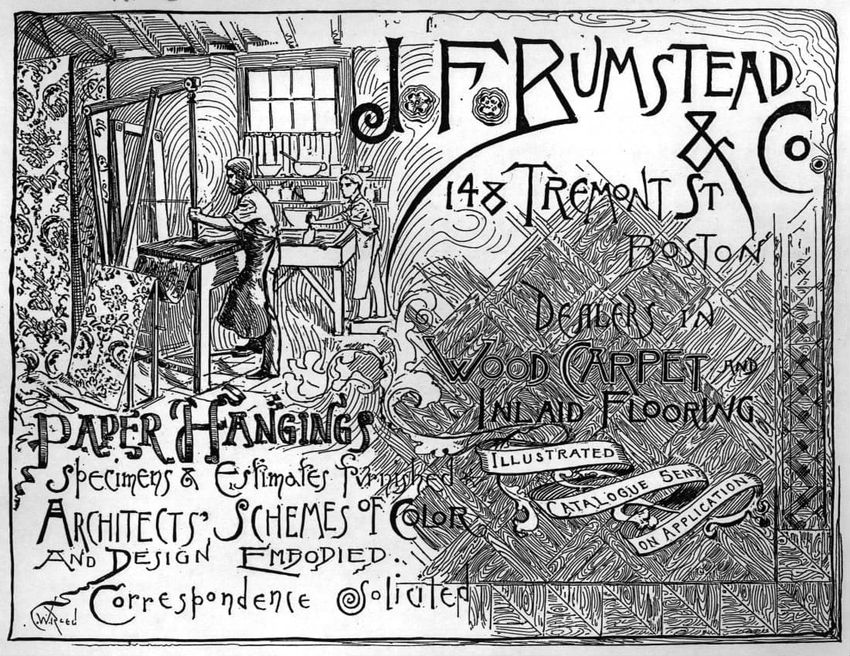 J. F. BUMSTEAD
& Co
148 TREMONT ST
BOSTON
DEALERS IN
WOOD CARPET AND
INLAID FLOORING
ILLUSTRATED
CATALOGUE SENT
ON APPLICATION
PAPER HANGINGS
Specimens & Estimates furnished
ARCHITECTS', SCHEMES OF COLOR
AND DESIGN EMBODIED..
Correspondence Solicited